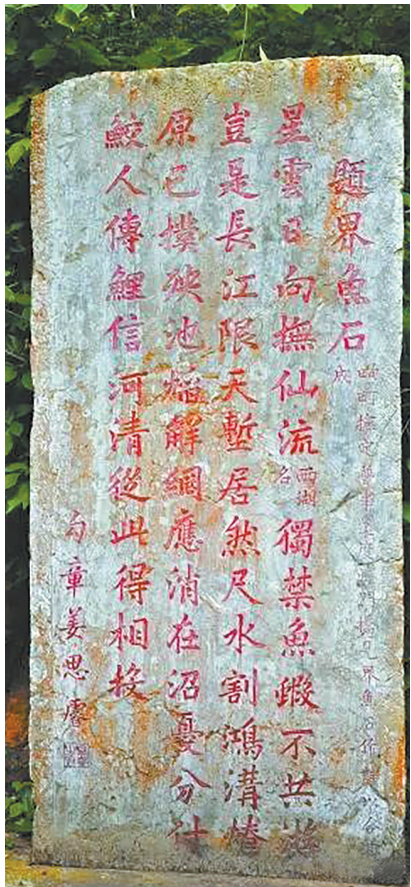 題界魚石
星雲日向撫仙流西湖名獨禁魚蝦不共游
豈是長江限天塹居然尺水割鴻溝椿
原已撲殃池焰解網應消在沼憂分付
鮫人傳鯉信河清從此得相投
勾章姜思睿